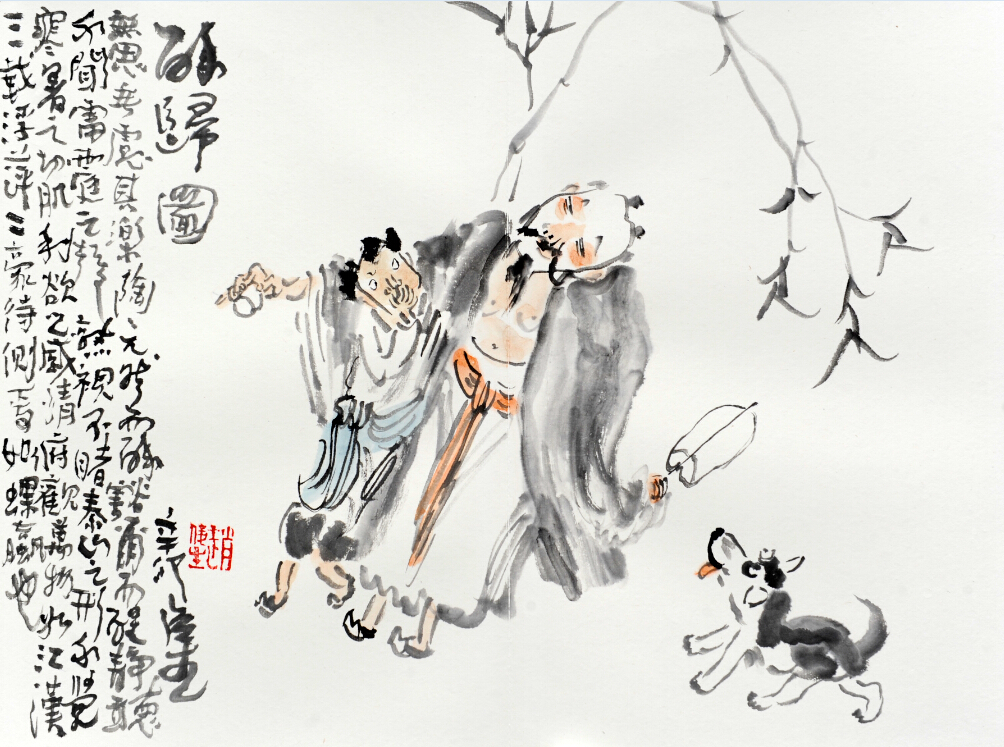 醉歸圖
無思無慮其樂陶〻兀然而醉豁爾而醒靜聽
不聞雷霆之聲熟視不睹泰山之形不覺
寒暑之切肌利欲之感情俯觀萬物如江漢
之載浮萍二豪侍側焉如
辛卯
趙